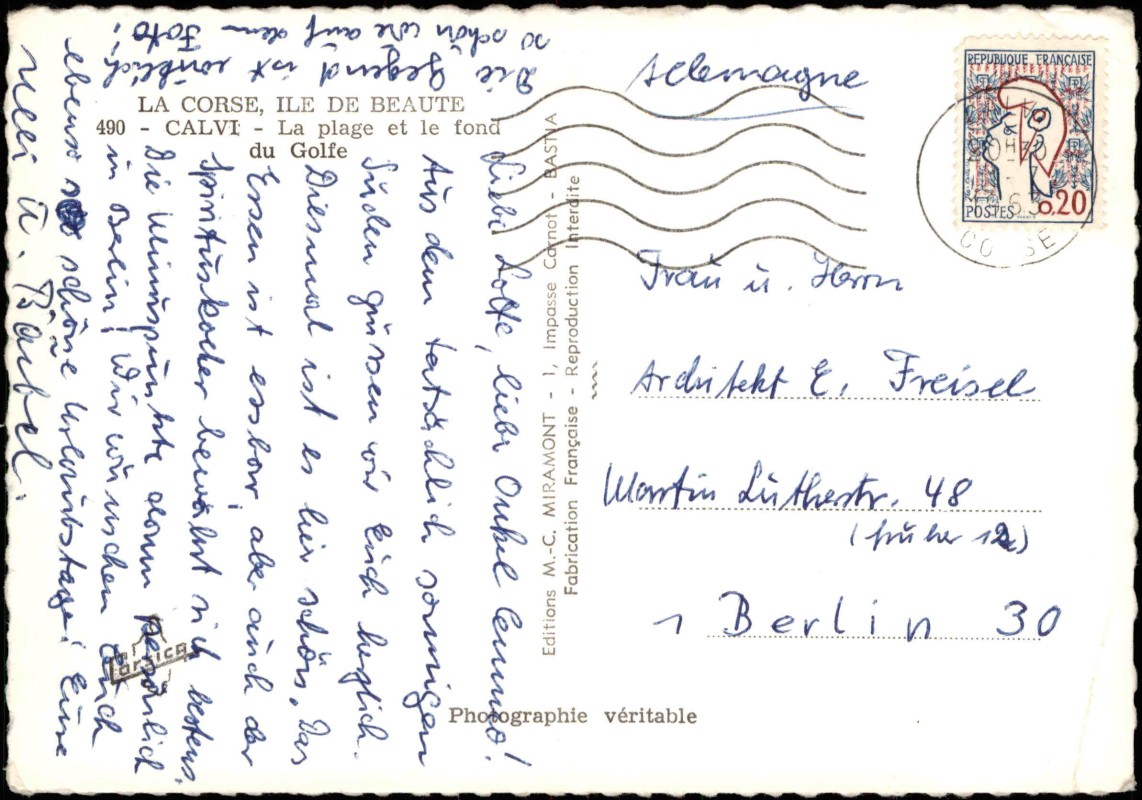 LA CORSE, ILE DE BEAUTE
490 - CALVI - La plage et le fond
du Golfe
Liebe Lotte, lieber Onkel
Aus dem tatsächlich sonnigen
Süden grüssen wir Euch herzlich.
Diesmal ist es hier schön. Das
Essen ist essbar, aber auch der
Spirituskocher bewährt sich bestens.
Die Minuspunkte dann persönlich
in Berlin! Wir wünschen Euch
ebenso schöne Urlaubstage! Eure
u. Bärbel.
Die Gegend ist wirklich
so schön wie auf dem Foto!
Corsica
Editions M.-C. MIRAMONT - 1, Impasse Carnot - BASTIA
Fabrication Française - Reproduction Interdite
Photographie véritable
Allemagne
REPUBLIQUE FRANÇAISE
POSTES 0,20
CORSE
Frau u. Herrn
Architekt E. Freisel
Martin Lutherstr. 48
(früher 12a)
1 Berlin 30